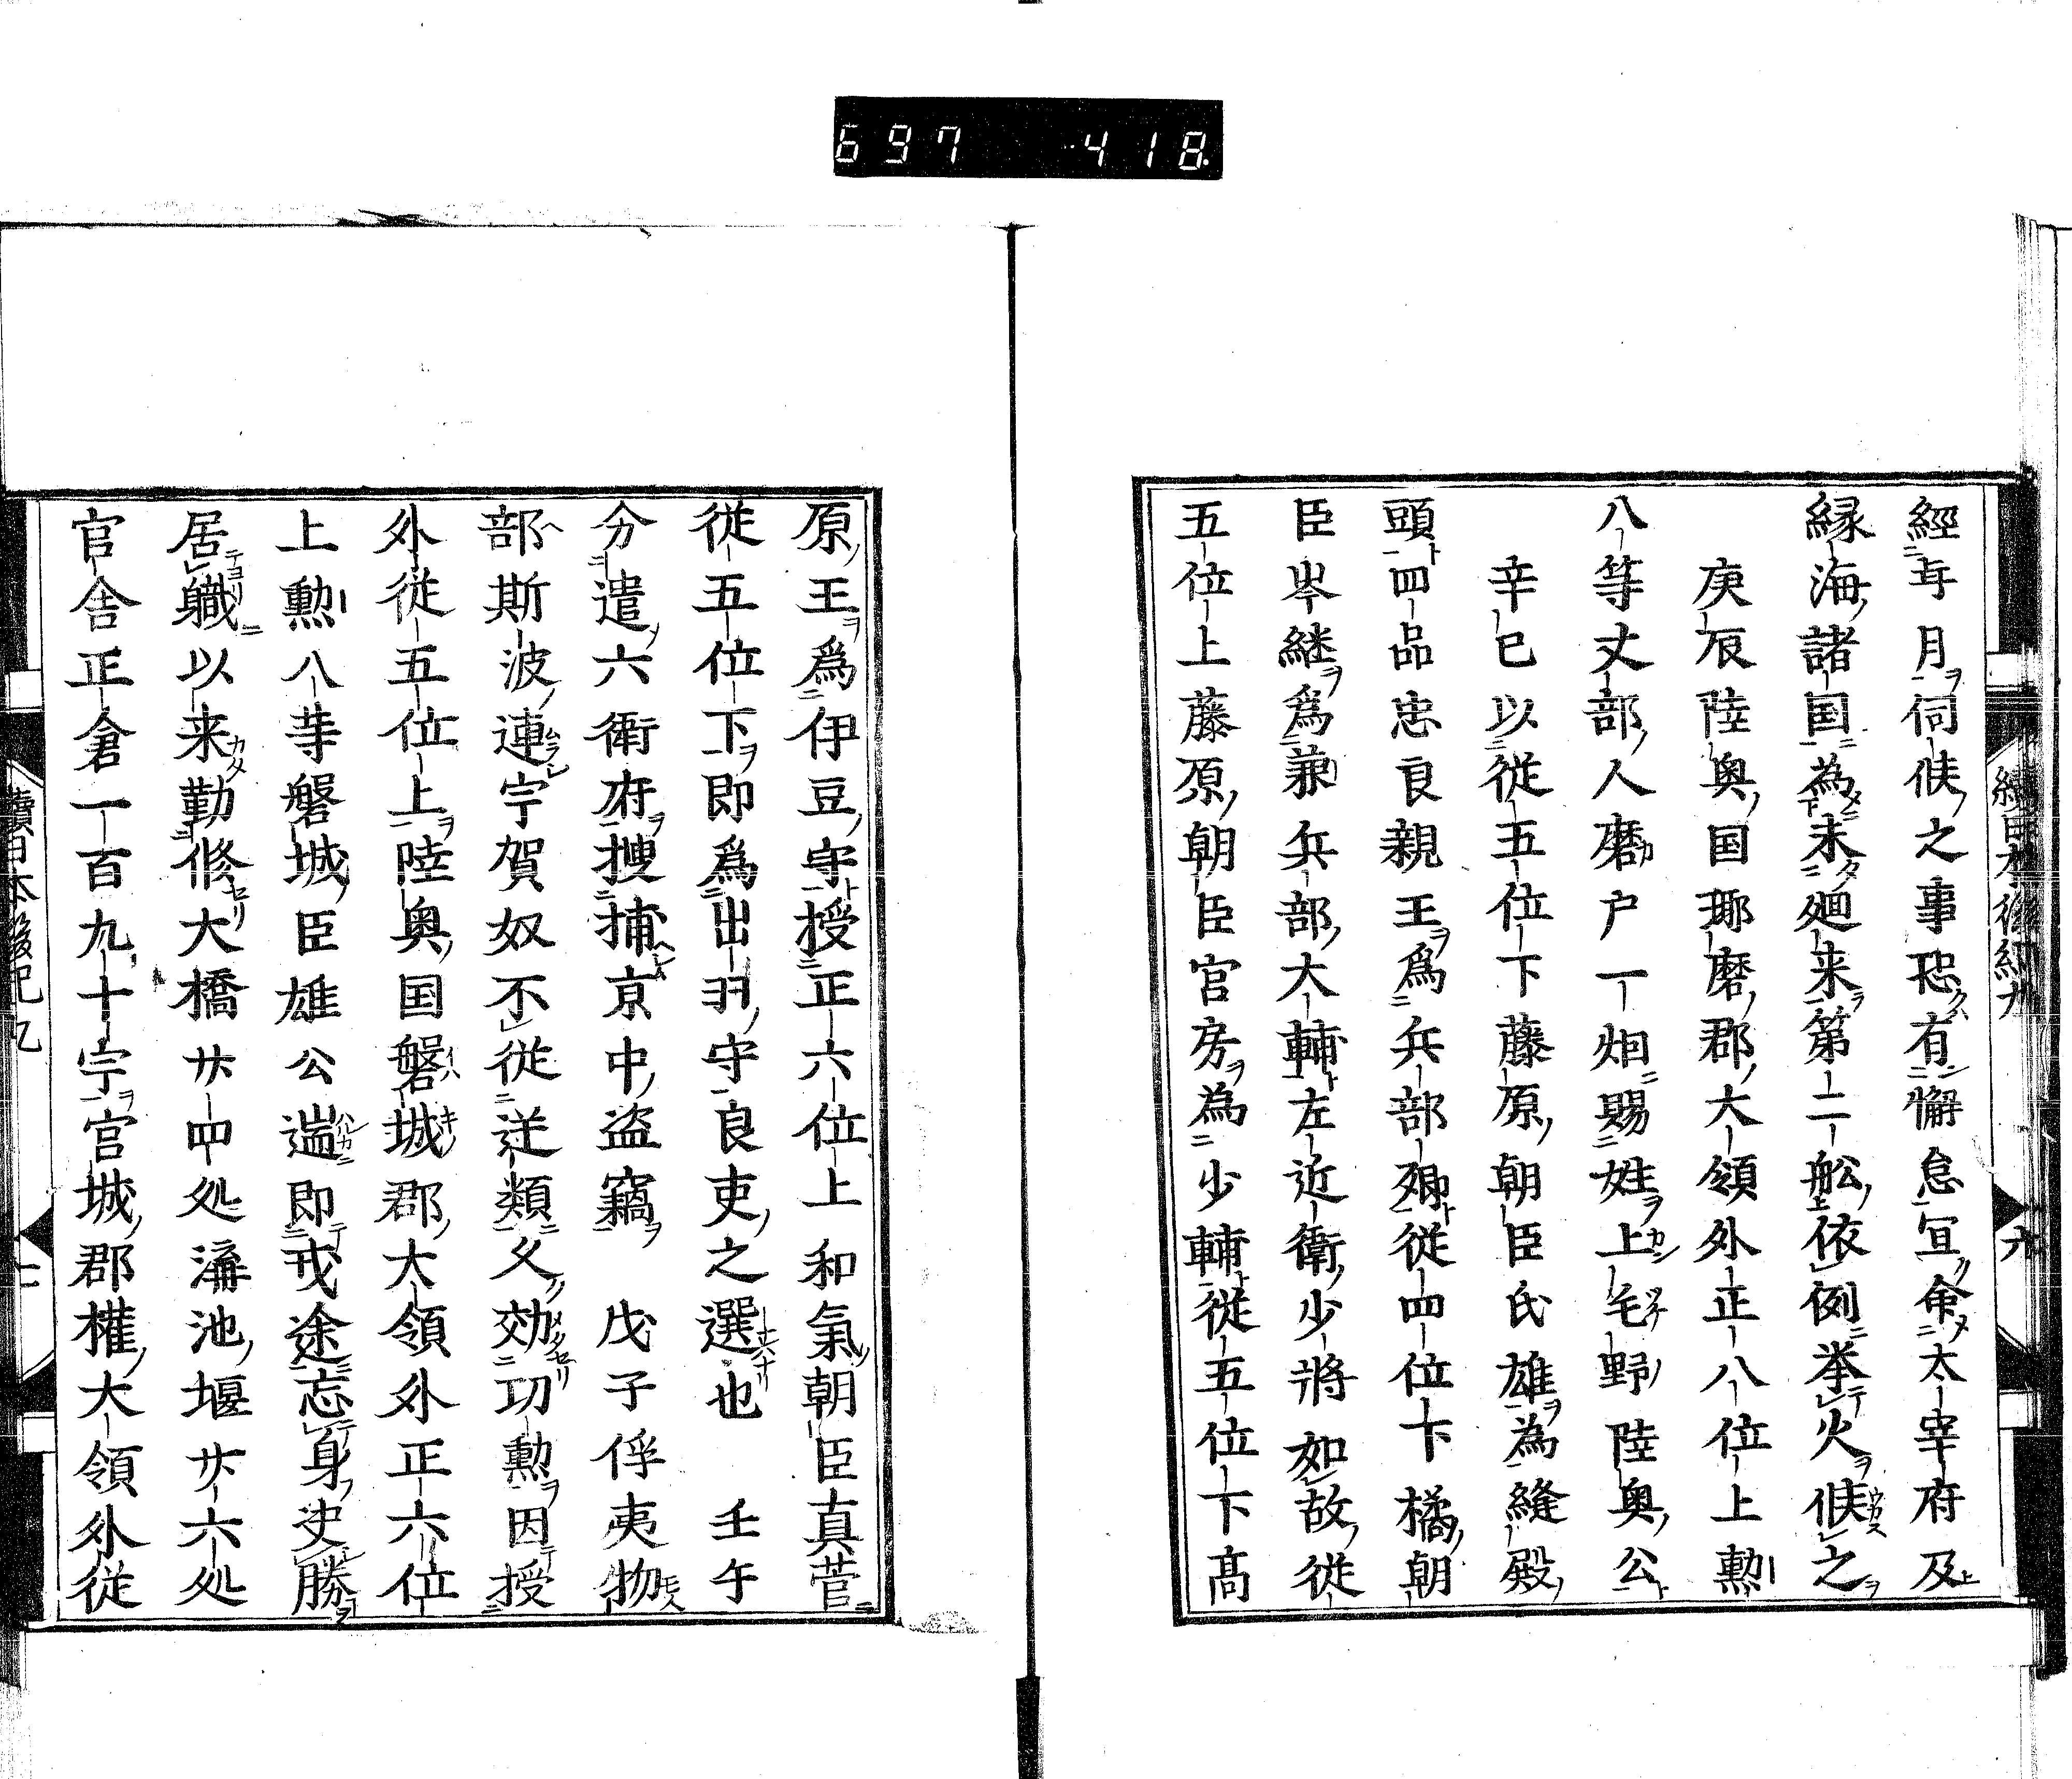 697 418
續日本後紀九
六
經年月伺候之事恐有懈怠宜命太宰府及
縁海諸国為未廻来第二舩依例挙火候之
庚辰陸奥国耶磨郡大領外正八位上勲
八等丈部人磨戸一烟賜姓上毛野陸奥公
辛巳以従五位下藤原朝臣氏雄為縫殿
頭四品忠良親王為兵部卿従四位下橘朝
臣岑継為兼兵部大輔左近衛少將如故従
五位上藤原朝臣宮房為少輔従五位下髙
原王為伊豆守授正六位上和氣朝臣真菅
従五位下即為出羽守良吏之選也 壬午
分遣六衛府搜捕亰中盗竊 戊子俘夷物
部斯波連宇賀奴不従逆類父効功勲因授
外従五位上陸奥国磐城郡大領外正六位
上勲八䓁磐城臣雄公遄即戎途忘身决勝
居職以来勤修大橋廿四処溝池堰廿六処
官舎正倉一百九十宇宮城郡權大領外従
續日本後紀九